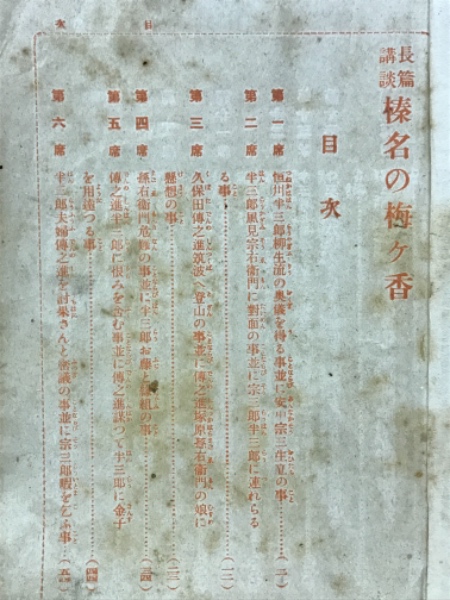 目次
長篇講談 榛名の梅ヶ香
目次
第一席 恒川半三郎柳生流の奥義を得る事並に安中宗三生立の事……(一)
第二席 半三郎風見宗右衛門に對面の事並に宗三郎半三郎に連れらる
る事……(一二)
第三席 久保田傳之進筑波へ登山の事並に傳之進塚原孫右衛門の娘に
懸想の事……(二三)
第四席 孫右衛門危難の事並に半三郎お藤と縁組の事……(三四)
第五席 傳之進半三郎に恨みを含む事並に傳之進謀つて半三郎に金子
を用達つる事……(四四)
第六席 半三郎夫婦傳之進を討果さんと密議の事並に宗三郎暇を乞ふ事…(五